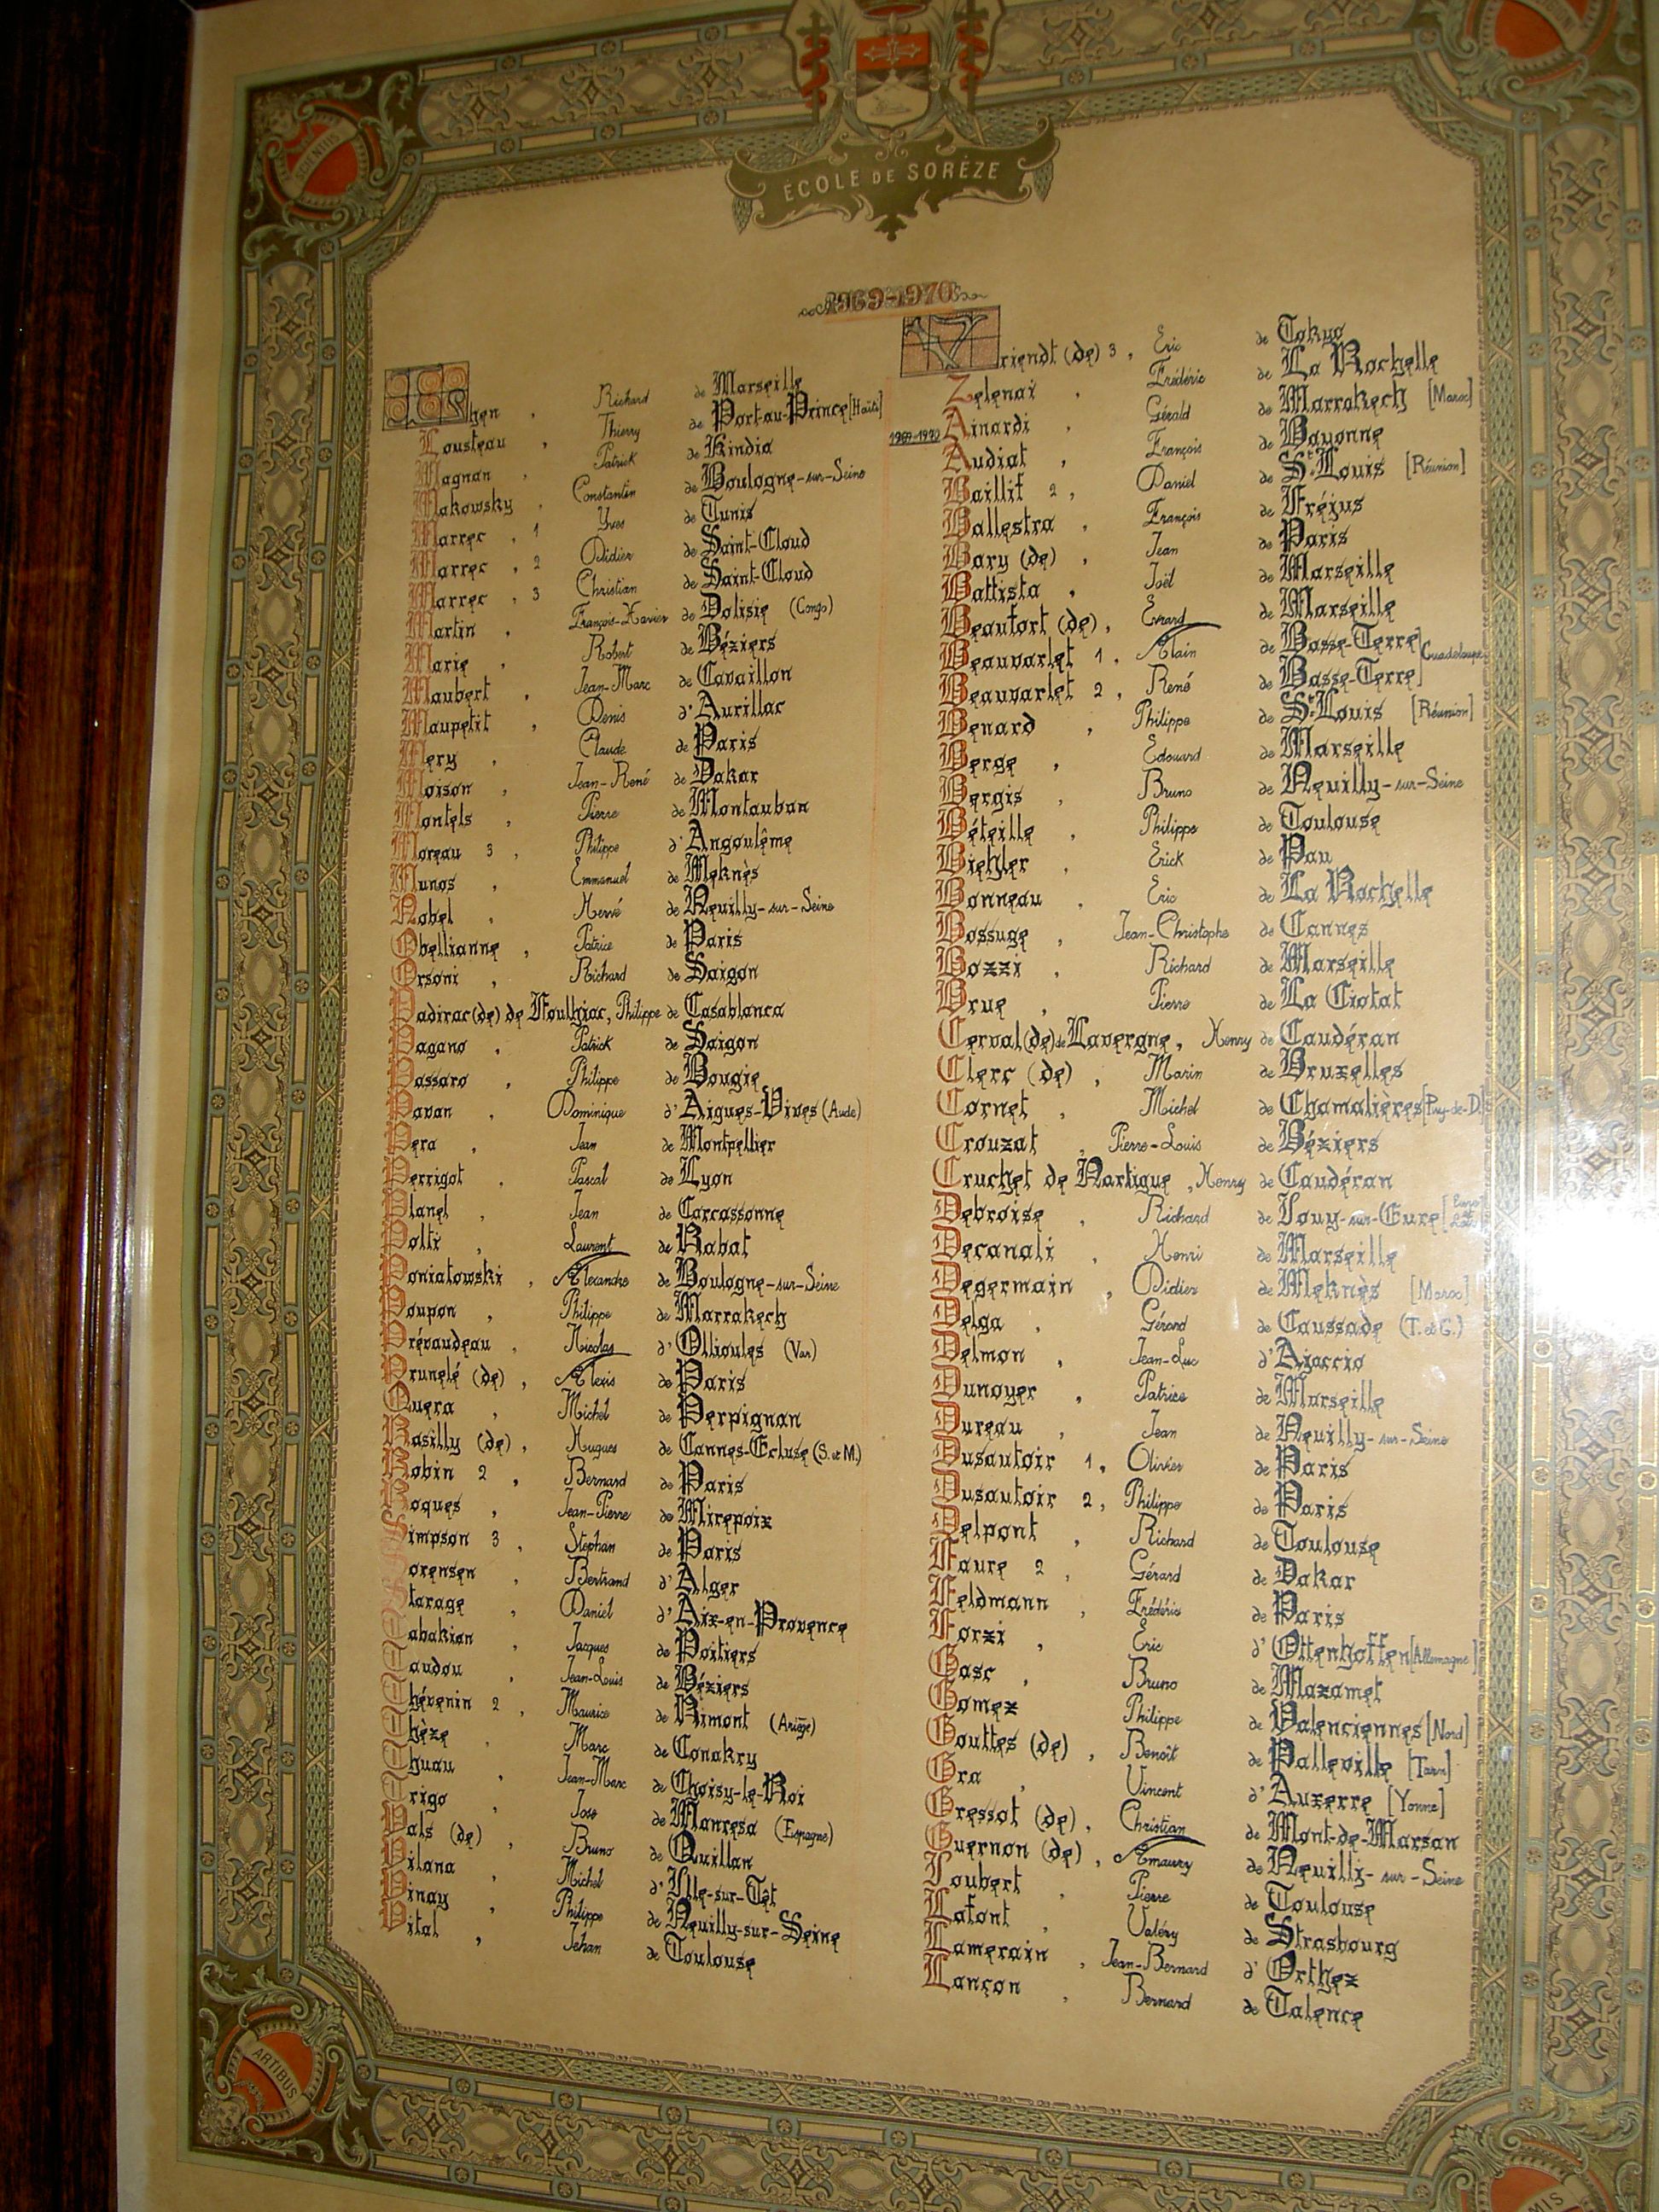 ÉCOLE DE SORÈZE
SCIENTIIS
1969-1970
hen , Richard de Marseille
Lousteau , Thierry de Port-au-Prince [Haïti]
Magnan , Patrick de Kindia
Makowsky , Constantin de Boulogne-sur-Seine
Marrec , 1 Yves de Tunis
Marrec , 2 Didier de Saint-Cloud
Marrec , 3 Christian de Saint-Cloud
Martin , François-Xavier de Dolisie (Congo)
Marie , Robert de Béziers
Maubert , Jean-Marc de Cavaillon
Maupetit , Denis d'Aurillac
Mery , Claude de Paris
Moison , Jean-René de Dakar
Montels , Pierre de Montauban
Moreau 3 , Philippe d'Angoulême
Munos , Emmanuel de Meknès
Nobel , Hervé de Neuilly-sur-Seine
Obellianne , Patrice de Paris
Orsoni , Richard de Saigon
Padirac (de) de Foulhiac, Philippe de Casablanca
Pagano , Patrick de Saigon
Passaro , Philippe de Bougie
Pavan , Dominique d'Aigues-Vives (Aude)
Pera , Jean de Montpellier
Perrigot , Pascal de Lyon
Planel , Jean de Carcassonne
Polti , Laurent de Rabat
Poniatowski , Alexandre de Boulogne-sur-Seine
Poupon , Philippe de Marrakech
Prévaudeau , Nicolas d'Ollioules (Var)
Prunelé (de) , Alexis de Paris
Quera , Michel de Perpignan
Rasilly (de) , Hugues de Cannes-Ecluse (S. et M.)
Robin 2 , Bernard de Paris
Roques , Jean-Pierre de Mirepoix
Simpson 3 , Stephan de Paris
Sorensen , Bertrand d'Alger
Starage , Daniel d'Aix-en-Provence
Tabakian , Jacques de Poitiers
Taudou , Jean-Louis de Béziers
Thévenin 2 , Maurice de Rimont (Ariège)
Thèze , Marc de Conakry
Thuau , Jean-Marc de Choisy-le-Roi
Trigo , Jose de Manresa (Espagne)
Vals (de) , Bruno de Quillan
Vilana , Michel d'Ille-sur-Têt
Vinay , Philippe de Neuilly-sur-Seine
Vital , Jehan de Toulouse
Vriendt (de) 3 , Eric de Tokyo
Zelenai , Frédéric de La Rochelle
1969-1970 Ainardi , Gérald de Marrakech [Maroc]
Audiat , François de Bayonne
Baillif 2 , Daniel de St Louis [Réunion]
Ballestra , François de Fréjus
Bary (de) , Jean de Paris
Battista , Joël de Marseille
Beaufort (de) , Erard de Marseille
Beauvarlet 1 , Alain de Basse-Terre] Guadeloupe
Beauvarlet 2 , René de Basse-Terre]
Benard , Philippe de St Louis [Réunion]
Berge , Edouard de Marseille
Bergis , Bruno de Neuilly-sur-Seine
Béteille , Philippe de Toulouse
Biehler , Erick de Pau
Bonneau , Eric de La Rochelle
Bossuge , Jean-Christophe de Cannes
Bozzi , Richard de Marseille
Brue , Pierre de La Ciotat
Cerval (de) de Lavergne , Henry de Caudéran
Clerc (de) , Marin de Bruxelles
Cornet , Michel de Chamalières [Puy-de-D.]
Crouzat , Pierre-Louis de Béziers
Cruchet de Nartigue , Henry de Caudéran
Debroise , Richard de Jouy-sur-Eure
Decanali , Henri de Marseille
Degermain , Didier de Meknès [Maroc]
Delga , Gérard de Caussade (T. et G.)
Delmon , Jean-Luc d'Ajaccio
Dunoyer , Patrice de Marseille
Dureau , Jean de Neuilly-sur-Seine
Dusautoir 1 , Olivier de Paris
Dusautoir 2 , Philippe de Paris
Delpont , Richard de Toulouse
Faure 2 , Gérard de Dakar
Feldmann , Frédéric de Paris
Forzi , Eric d'Ottenhoffen [Allemagne]
Gasc , Bruno de Mazamet
Gomez Philippe de Valenciennes [Nord]
Gouttes (de) , Benoît de Palleville [Tarn]
Gra , Vincent d'Auxerre [Yonne]
Gressot (de) , Christian de Mont-de-Marsan
Guernon (de) , Amaury de Neuilli-sur-Seine
Joubert , Pierre de Toulouse
Lafont , Valéry de Strasbourg
Lamerain , Jean-Bernard d'Orthez
Lançon , Bernard de Talence
ARTIBUS